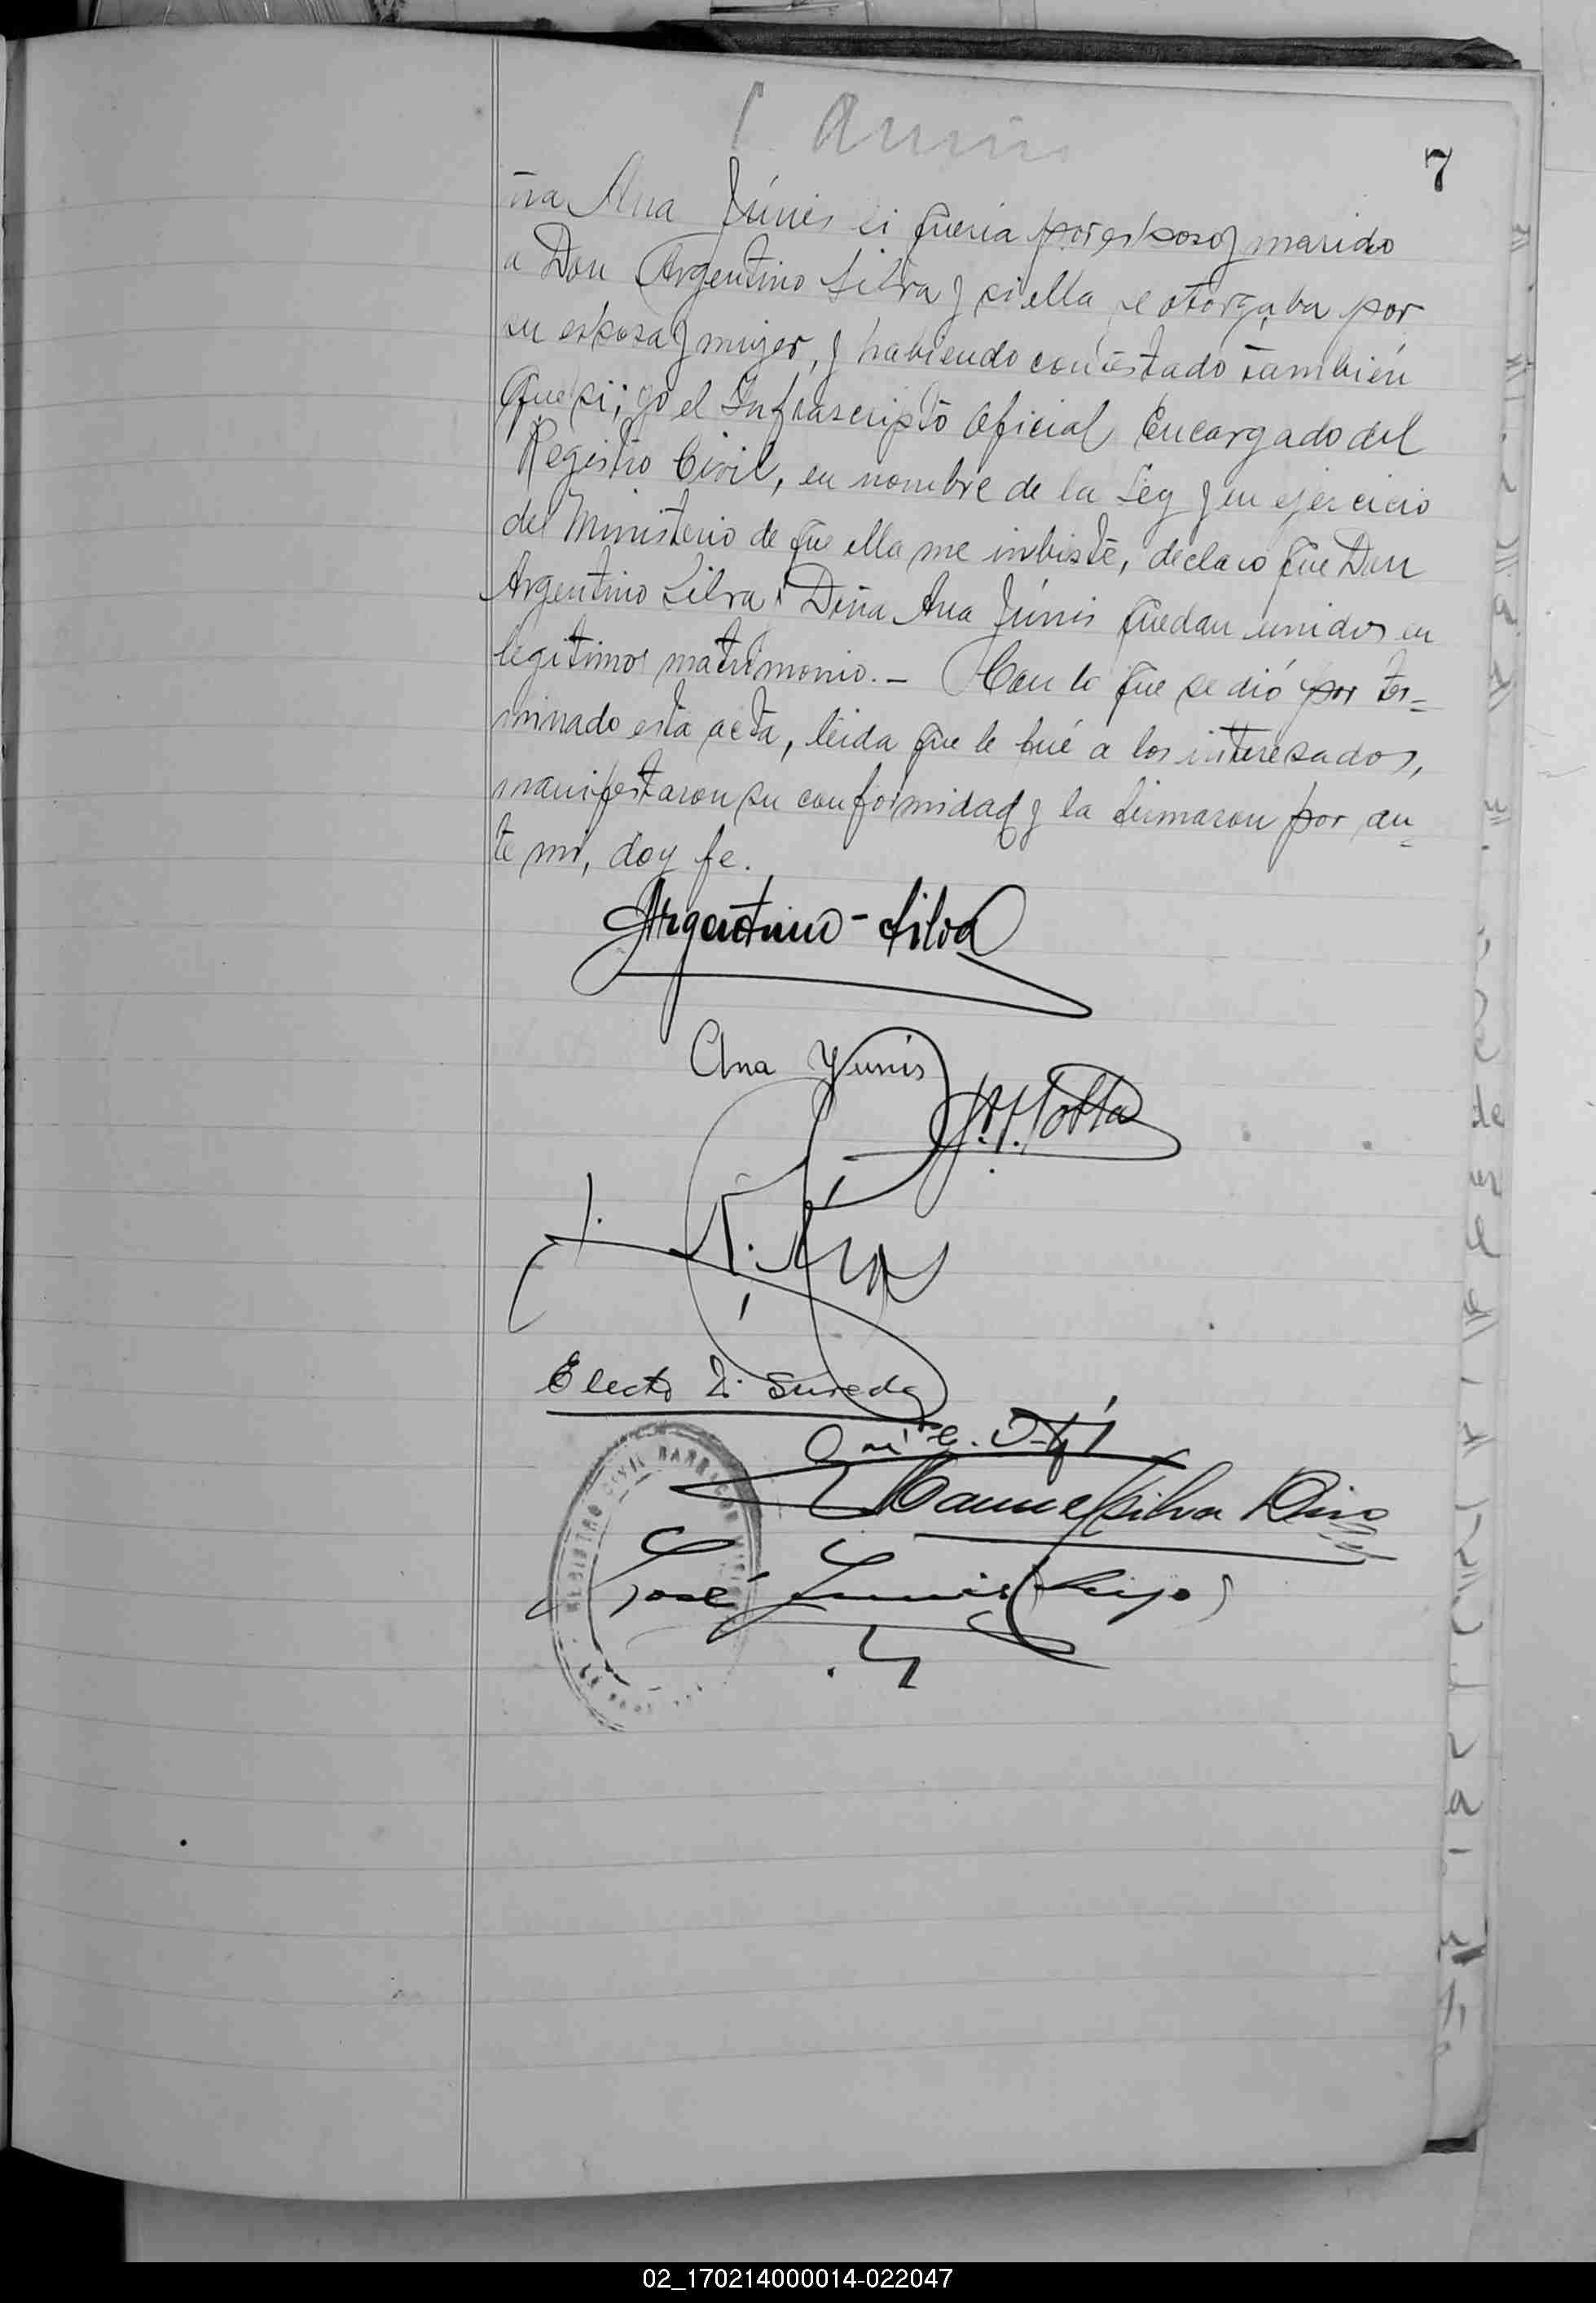 7
ña Ana Júnis si queria por esposo y marido
a Don Argentino Silva y si ella se otorgaba por
su esposa y mujer, y habiendo contestado también
que si; yo el Infrascripto Oficial Encargado del
Registro Civil, en nombre de la Ley y en ejercicio
del Ministerio de que ella me inbiste, declaro que Don
Argentino Silva y Doña Ana Júnis quedan unidos en
legitimo matrimonio.- Con lo que se dió por ter=
minado esta acta, leida que le fué a los interesados,
manifestaron su conformidad y la firmaron por an=
te mi, doy fe.
Argentino-Silva
Ana Yunis
Electo Sureda
Manuel Silva
José Junis (hijo)
REGISTRO CIVIL
02_170214000014-022047